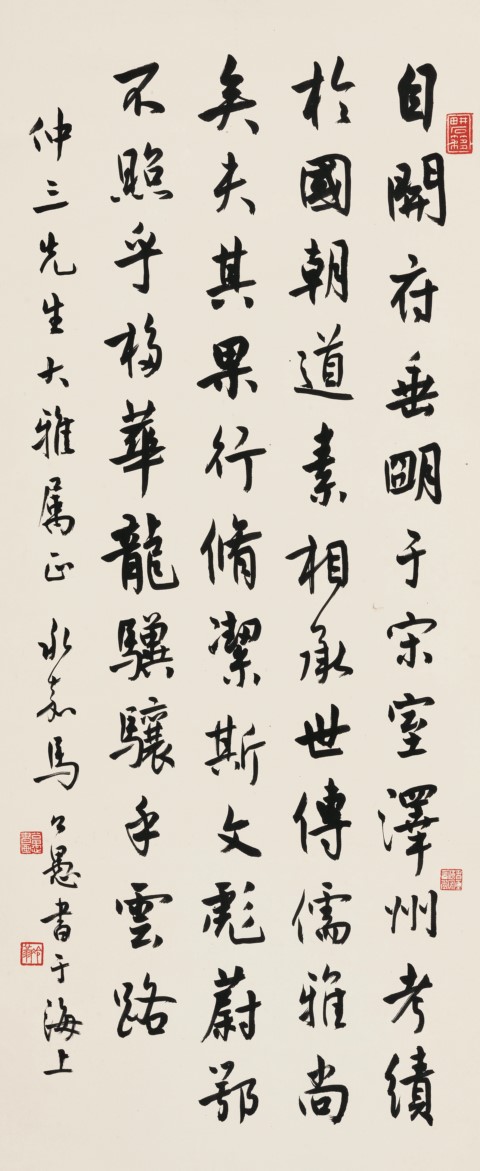 自開府垂明于宋室澤州考績
於國朝道素相承世傳儒雅尚
矣夫其果行脩潔斯文彪蔚鄂
不照乎棣華龍驥驤乎雲路
仲三先生大雅屬正 永嘉馬公愚書于海上